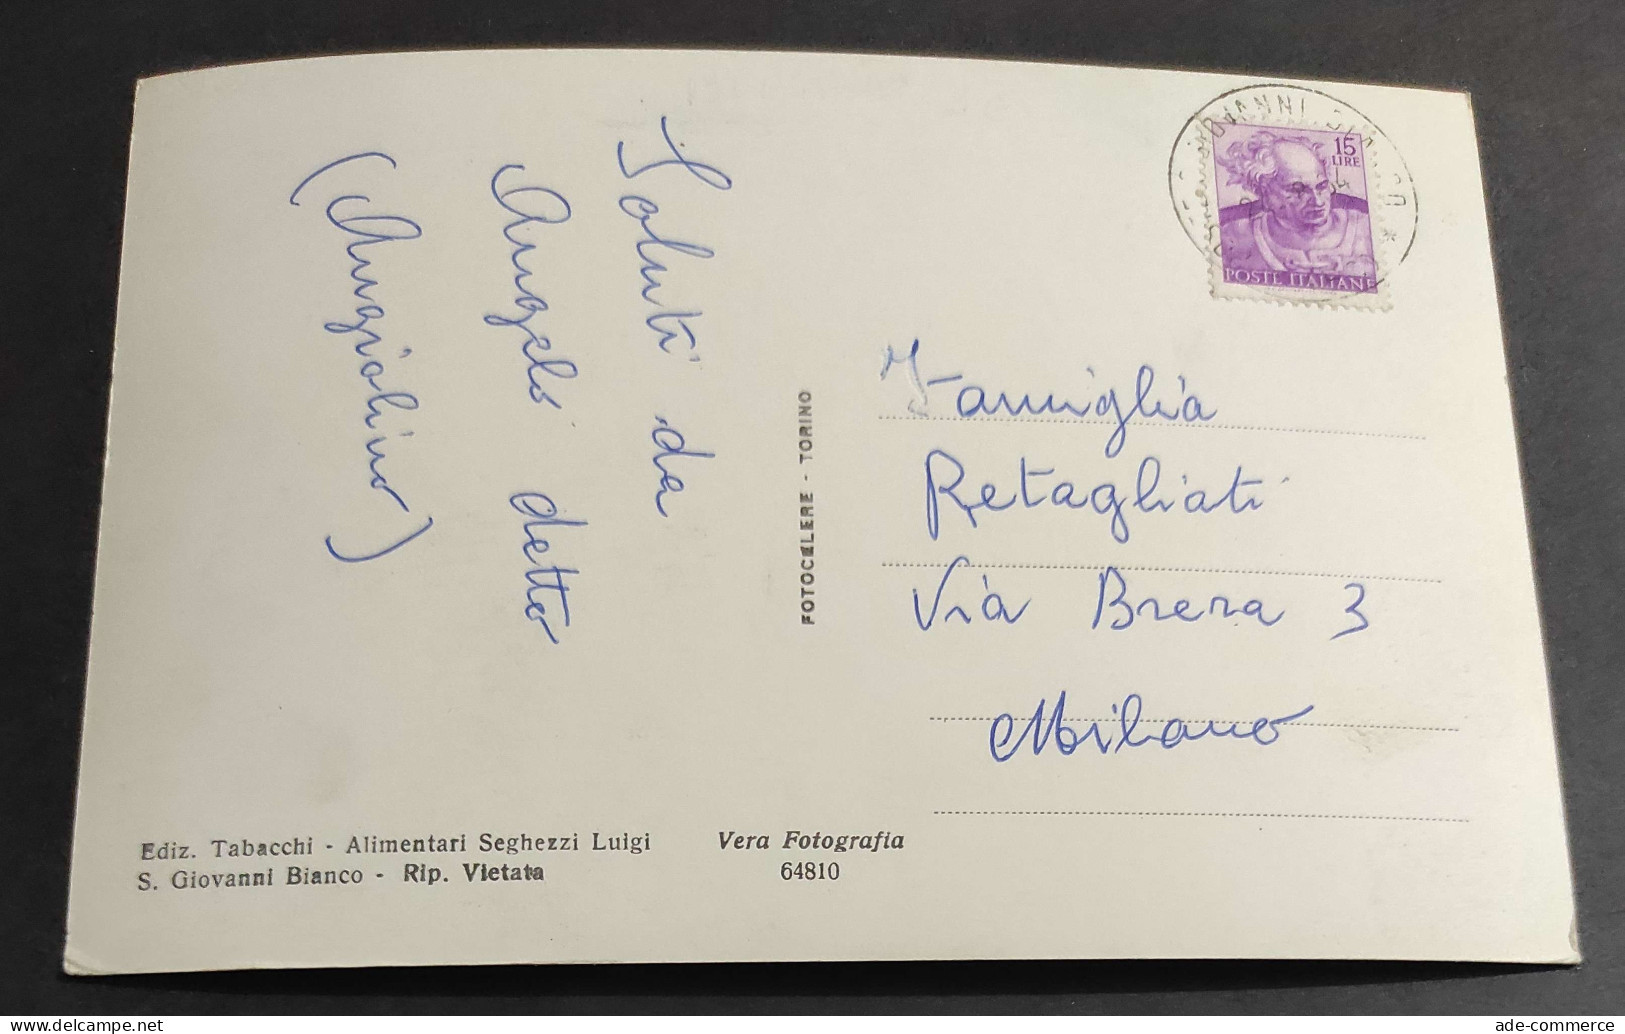 Saluti da
Angelo detto
(Angiolino)
FOTOCELERE - TORINO
15
LIRE
POSTE ITALIANE
Famiglia
Retagliati
Via Brera 3
Milano
Ediz. Tabacchi - Alimentari Seghezzi Luigi
S. Giovanni Bianco - Rip. Vietata
Vera Fotografia
64810
ade-commerce